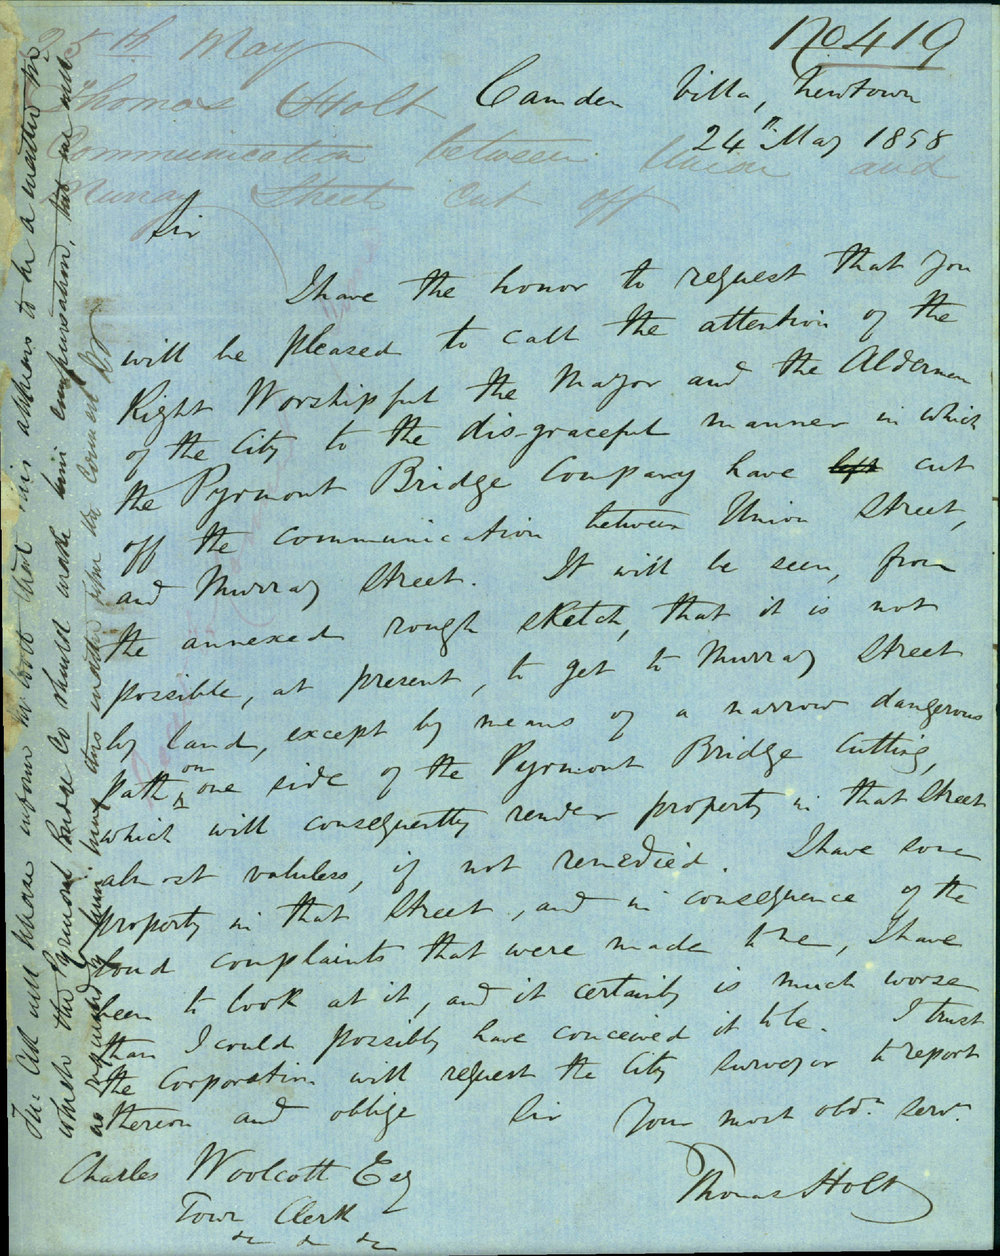 No 419
25th May
Thomas Holt
Communication between Union and
Murray Streets cut off
Camden Villa, Newtown
24th May 1858
Sir
I have the honor to request that you
will be pleased to call the attention of the
Right Worshipful the Mayor and the Aldermen
of the City to the dis-graceful manner in which
the Pyrmont Bridge Company have left cut
off the communication between Union Street,
and Murray Street. It will be seen, from
the annexed rough sketch, that it is not
possible, at present, to get to Murray Street
by land, except by means of a narrow dangerous
path on one side of the Pyrmont Bridge Cutting,
which will consequently render property in that Street
almost valuless, if not remedied. I have some
property in that Street, and in consequence of the
loud complaints that were made to me, I have
been to look at it, and it certainly is much worse
than I could possibly have conceived it to be. I trust
the Corporation will request the City Surveyor to report
thereon and oblige Sir Your most obdt. servt.
Thomas Holt
Charles Woolcott Esq
Town Clerk
&c &c &c
The City will please inform Mr Holt that this appears to be a matter for
which the Pyrmont Bridge Co should make him compensation, but he will
as requested by him bring this matter before the Council